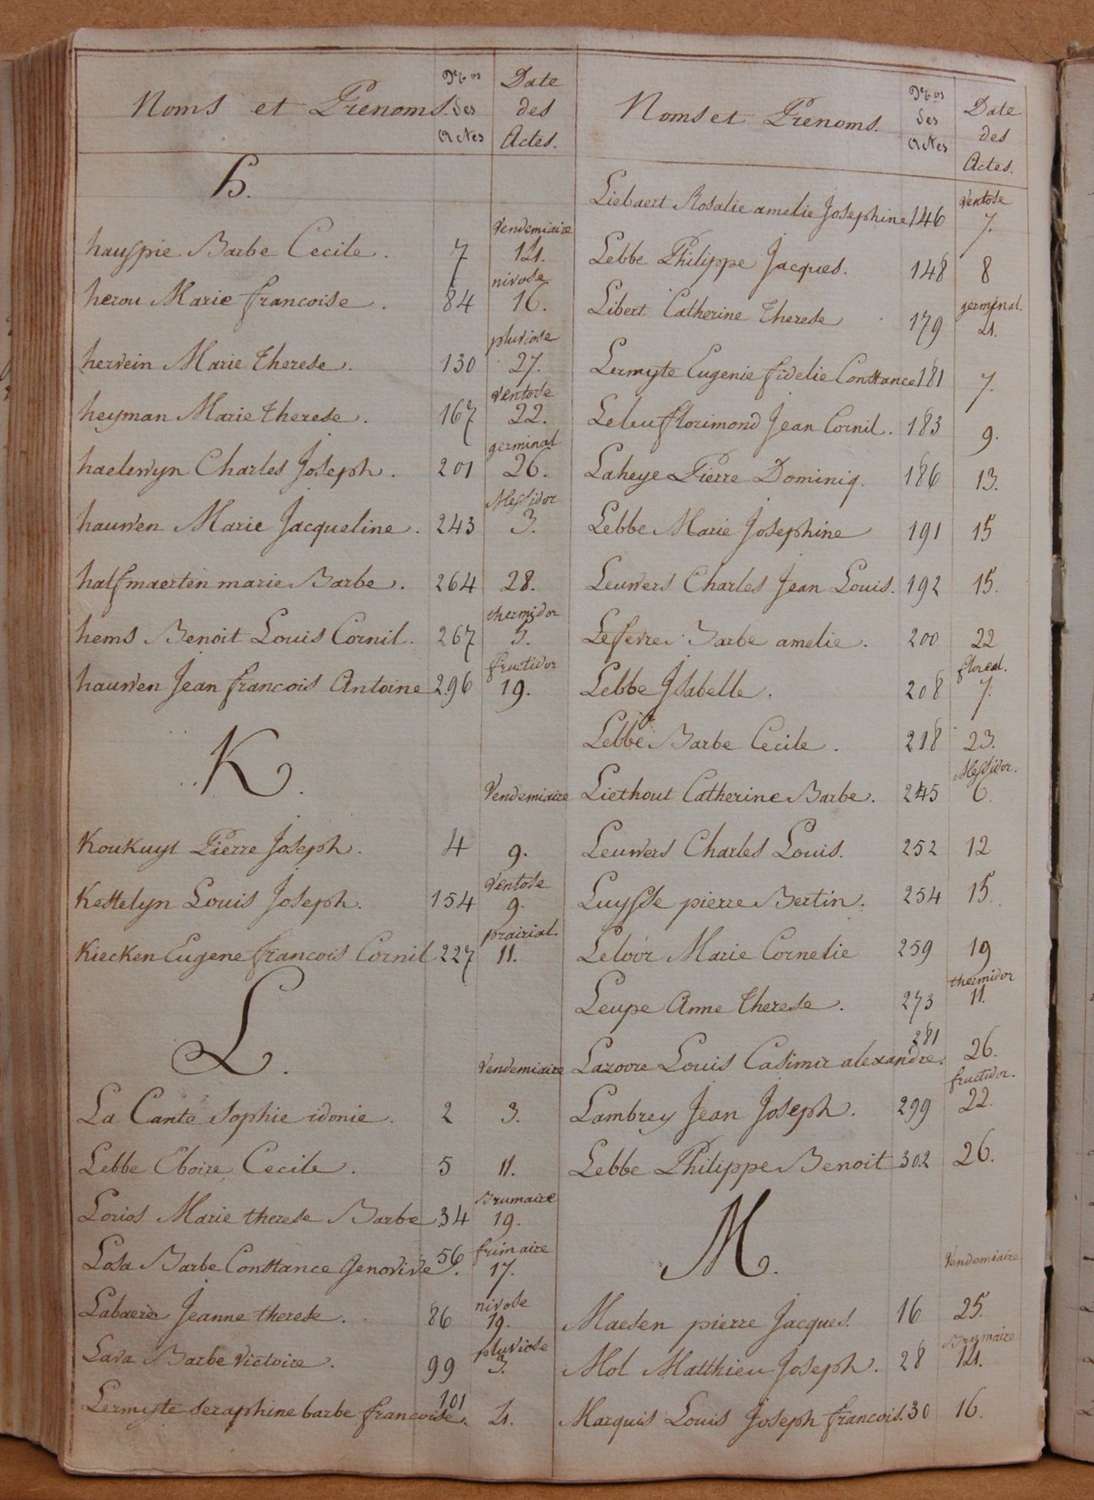 Noms et Prenoms. Nos des Actes Date des Actes.
H.
Vendemiaire
hauspie Barbe Cecile. 7 14.
nivose
herou Marie francoise. 84 16.
pluviose
herwein Marie therese. 130 27.
ventose
heyman Marie therese. 167 22.
germinal
haelewyn Charles Joseph. 201 26.
Messidor
hauwen Marie Jacqueline. 243 3.
halfmaerten marie Barbe. 264 28.
thermidor
hems Benoit Louis Cornil. 267 5.
fructidor
hauwen Jean francois Antoine 296 19.
K.
Vendemiaire
Koukuyt Pierre Joseph. 4 9.
Ventose
Kestelyn Louis Joseph. 154 9.
prairial.
Kiecken Eugene francois Cornil 227 11.
L.
Vendemiaire
La Cante Sophie idonie. 2 3.
Lebbe Eboire Cecile. 5 11.
Brumaire
Lorios Marie therese Barbe 34 19.
frimaire
Lasa Barbe Constance Genovive. 56 17.
nivose
Labaere Jeanne therese. 86 19.
pluviose
Lava Barbe Victoire. 99 3.
Lermyte seraphine barbe francoise. 101 4.
Noms et Prenoms. Nos des Actes Date des Actes.
Ventose
Liebaert Rosalie amelie Josephine 146 7.
Lebbe Philippe Jacques. 148 8
germinal.
Libert Catherine therese 179 4.
Lermyte Eugenie fidelie Constance 181 7.
Leleu florimond Jean Cornil. 183 9.
Laheye Pierre Dominiq. 186 13.
Lebbe Marie Josephine 191 15
Leuwers Charles Jean Louis. 192 15.
Lefevre Barbe amelie. 200 22
floreal.
Lebbe Isabelle. 208 7.
Lebbe Barbe Cecile. 218 23.
Messidor.
Liethout Catherine Barbe. 245 6.
Leuwers Charles Louis. 252 12
Luysde pierre Bertin. 254 15.
Leloor Marie Cornelie 259 19
thermidor
Leupe Anne therese. 273 11.
Lazovre Louis Casimir alexandre. 281 26.
fructidor.
Lambrey Jean Joseph. 299 22.
Lebbe Philippe Benoit 302 26.
M.
Vendemiaire
Maesen pierre Jacques. 16 25.
Brumaire
Mol Matthieu Joseph. 28 14.
Marquis Louis Joseph francois. 30 16.